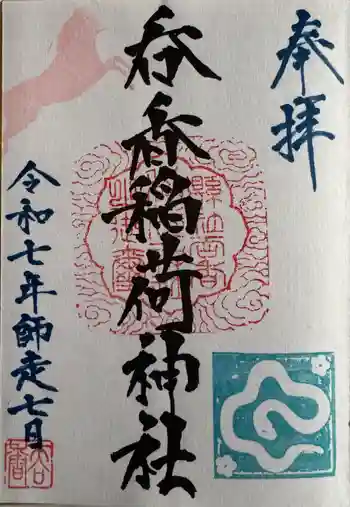 奉拝
谷香稲荷神社
令和七年師走七日